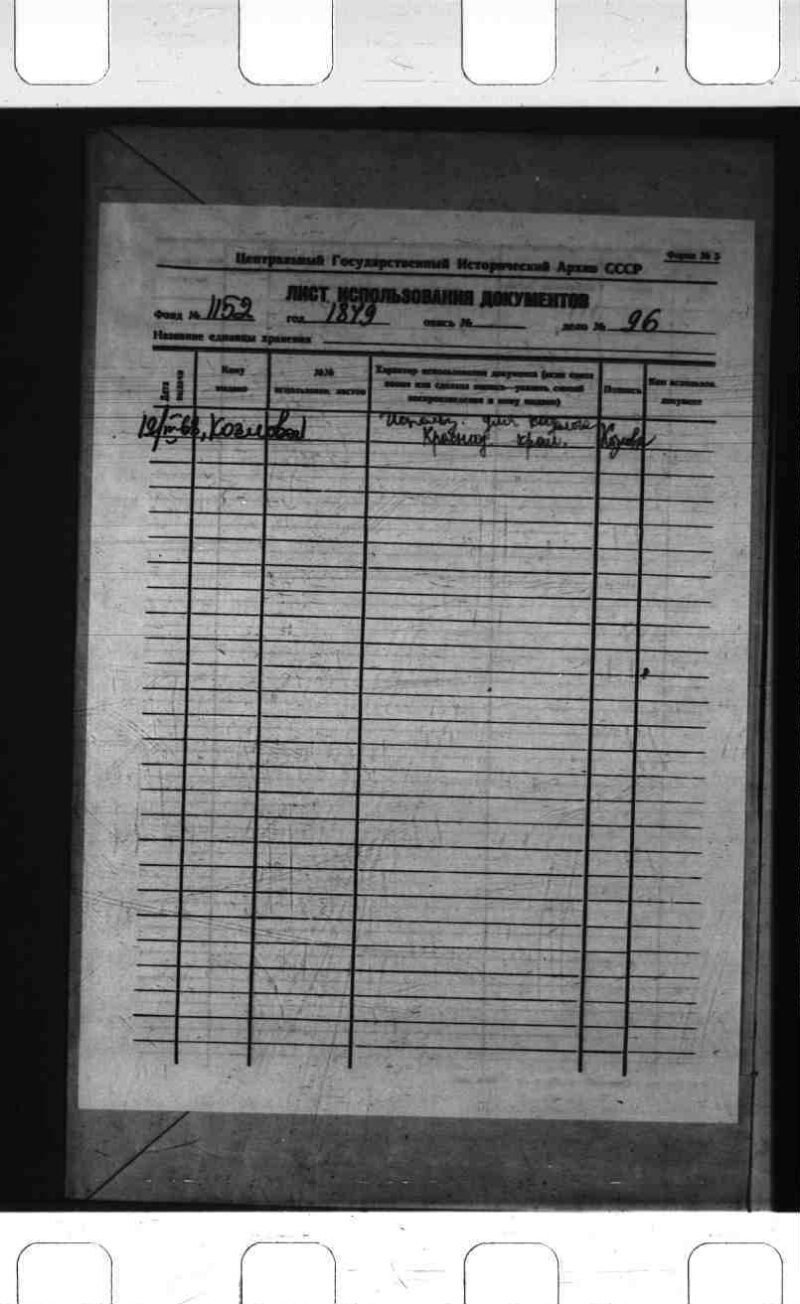 Форма № 5
Центральный Государственный Исторический Архив СССР
ЛИСТ ИСПОЛЬЗОВАНИЯ ДОКУМЕНТОВ
Фонд № 1152 год 1879 опись № дело № 96
Название единицы хранения
Дата выдачи
Кому выдано
№№ использован. листов
Характер использования документа (если снята копия или сделана выпись—указать способ воспроизведения и кому выдано)
Подпись
Кем использов. документ
Козлова
Использ. для
Краснод. края.